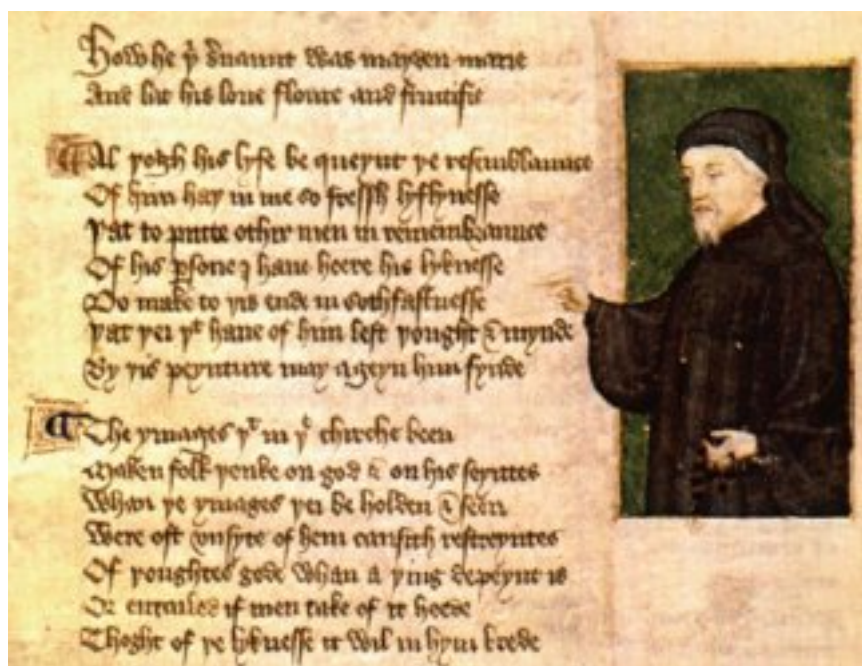 How he þͭ ẜuaunt was mayden marie
And lat his loue floure and fructifie
Al þogh his lyfe be queynt þe resemblaunce
Of him haþ in me so fressh lyflynesse
Þat to putte othir men in remembraunce
Of his ꝑsone I haue heere his lyknesse
Do make to þis ende in sothfastnesse
Þat þei þͭ haue of him left þought & mynde
By þis peynture may ageyn him fynde
The ymages þͭ in þͤ chirche been
Maken folk þenke on god & on his seyntes
Whan þe ymages þei be holden & seen
Were oft vnsyte of hem causith restreyntes
Of þoughtes gode whan a þing depeynt is
Or entailed if men take of it heede
Thoght of þe lyknesse it wil in hym brede